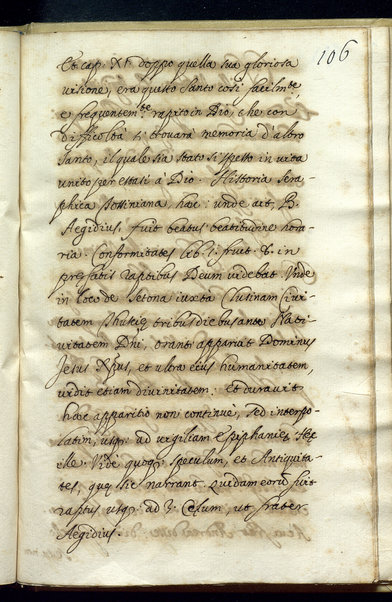 106
Et cap. XI. doppo quella sua gloriosa
visione, era questo Santo così facilm.te,
e frequentem.te rapito in Dio, che con
difficoltà si trovarà memoria d'altro
Santo, il quale sia stato sì spesso in vita
unito per estasi à Dio. Historia Sera-
phica Possiniana haec: unde ait, B.
Aegidius, fuit beatus beatitudine hona-
ria. Conformitates lib. 1. fruit. 8. in
prefatis raptibus Deum videbat. Unde
in loco de Setona iuxta Clusinam Civi-
tatem Thusciae tribus diebus ante Nati-
vitatem Dni, oranti apparuit Dominus
Jesus Xpus, et ultra eius humanitatem,
vidit etiam divinitatem: Et duravit
haec apparitio non continue, sed interpo-
latim, usq. ad vigiliam Epiphaniae, sex
ille. Vide quoq. speculum, et Antiquita-
tes, quae sic narrant. Quidam eorum fuit
raptus usq. ad 3. Caelum, ut frater
Aegidius.